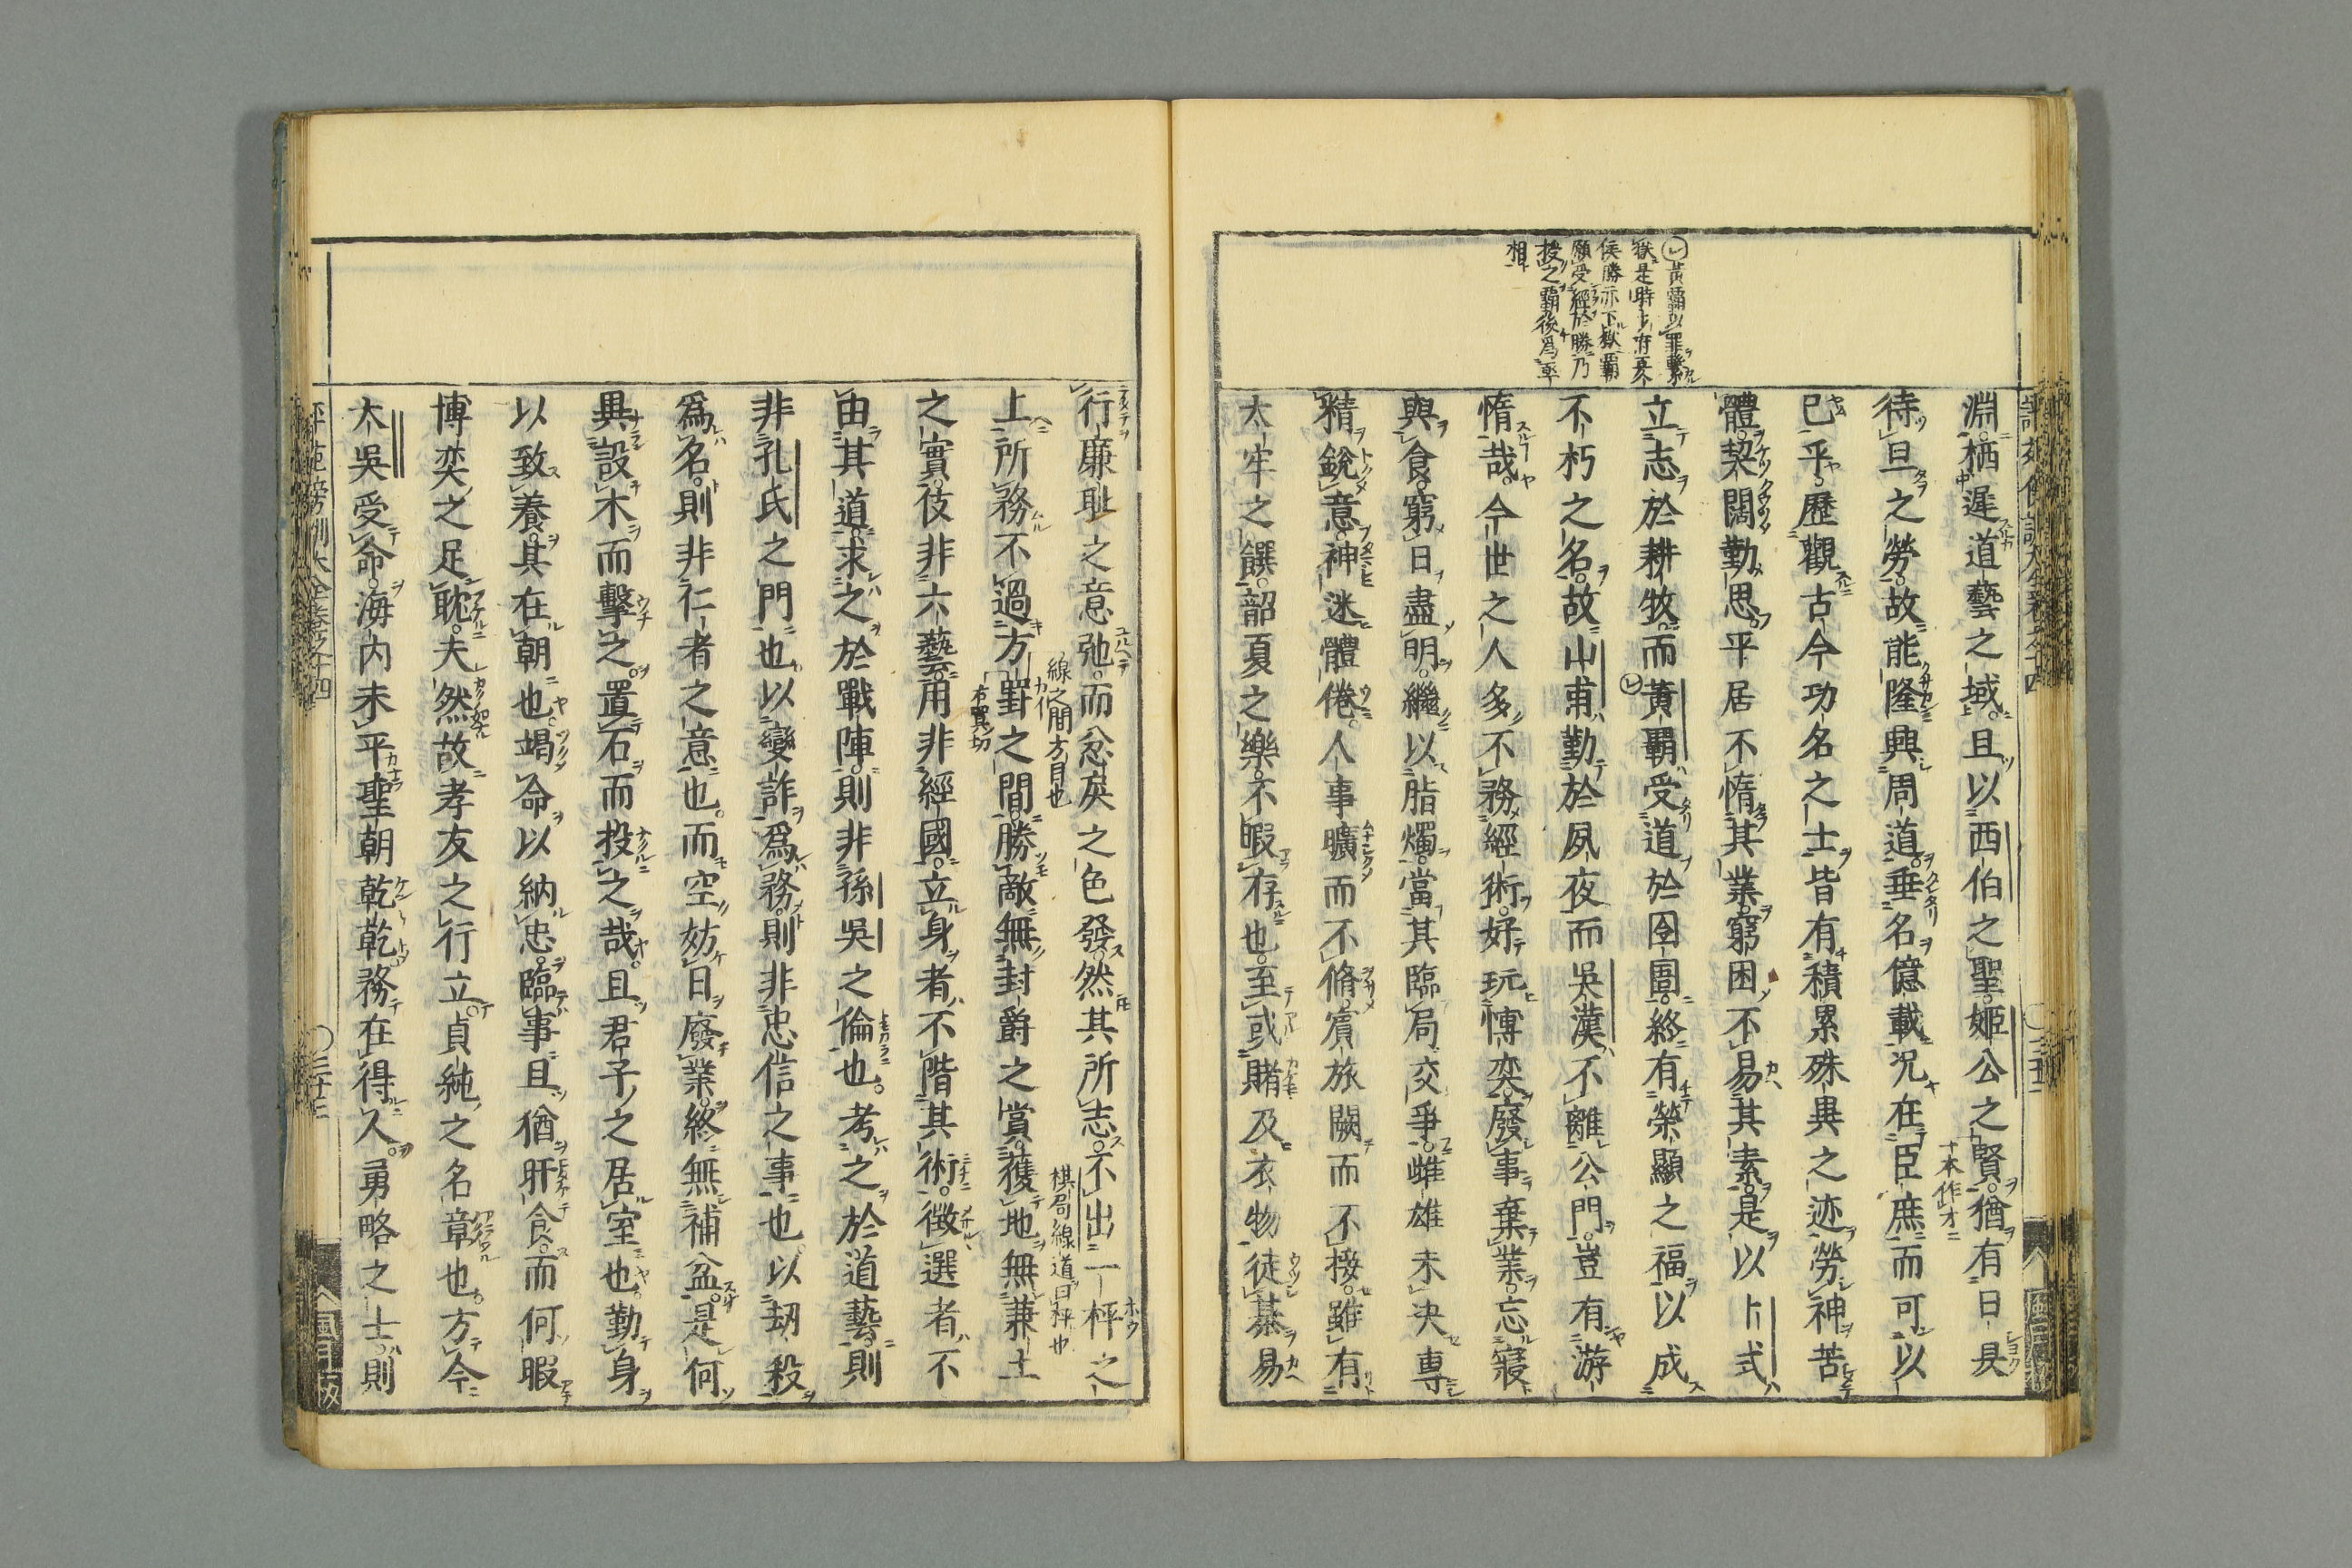 黃霸以罪繫
獄是時
侯勝亦下獄霸
願受經於勝乃
授之霸後爲
相
淵栖遲道藝之域且以西伯之聖姬公之賢猶有日昃
待旦之勞故能隆興周道垂名億載况在臣庶而可以
已乎歷觀古今功名之士皆有積累殊異之迹勞神苦
體契闊勤思平居不惰其業窮困不易其素是以卜式
立志於耕牧而黃霸受道於囹圄終有榮顯之福以成
不朽之名故山甫勤於夙夜而吳漢不離公門豈有游
惰哉今世之人多不務經術好玩博奕廢事棄業忘寢
與食窮日盡明繼以脂燭當其臨局交爭雌雄未决專
精銳意神迷體倦人事曠而不脩賓旅闕而不接雖有
太牢之饌韶夏之樂不暇存也至或賭及衣物徙棊易
行廉耻之意弛而忿戾之色發然其所志不出一枰之
棋局線道曰枰也
上所務不過方罫之間勝敵無封爵之賞獲地無兼土
線之間方目也
之實伎非六藝用非經國立身者不階其術徵選者不
由其道求之於戰陣則非孫吳之倫也考之於道藝則
非孔氏之門也以變詐爲務則非忠信之事也以劫殺
爲名則非仁者之意也而空妨日廢業終無補益是何
異設木而擊之置石而投之哉且君子之居室也勤身
以致養其在朝也竭命以納忠臨事且猶旰食而何暇
博奕之足耽夫然故孝友之行立貞純之名章也方今
太吳受命海內未平聖朝乾乾務在得人勇略之士則